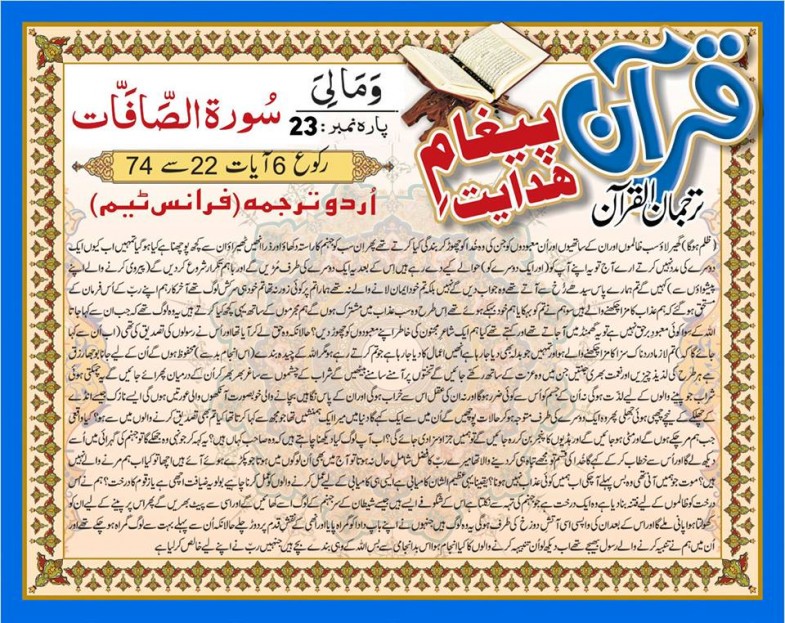 قرآن
پیغامِ
ھدایت
ترجمان القرآن
وَمَالِیَ
پارہ نمبر: 23
سُورۃ الصَّافَّات
رکوع 6 آیات 22 سے 74
اُردو ترجمہ (فرانس ٹیم)
( ظلم ہوگا) گھیر لاؤ سب ظالموں اور ان کے ساتھیوں اور اُن معبودوں کو جن کی وہ خدا کو چھوڑ کر بندگی کیا کرتے تھے پھر ان سب کو جہنم کا راستہ دکھاؤ اور ذرا انہیں ٹھیراؤ اِن سے کچھ پوچھنا ہے کیا ہو گیا تمہیں اب کیوں ایک
دوسرے کی مدد نہیں کرتے ارے آج تو یہ اپنے آپ کو (اور ایک دوسرے کو ) حوالے کیے دے رہے ہیں اس کے بعد یہ ایک دوسرے کی طرف مُڑیں گے اور باہم تکرار شروع کر دیں گے (پیروی کرنے والے اپنے
پیشواؤں سے ) کہیں گے تم ہمارے پاس سیدھے رُخ سے آتے تھے وہ جواب دیں گے نہیں بلکہ تم خود ایمان لانے والے نہ تھے ہمارا تم پر کوئی زور نہ تھا تم خود ہی سرکش لوگ تھے آخر کار ہم اپنے ربّ کے اس فرمان کے
مستحق ہو گئے کہ ہم عذاب کا مزا چکھنے والے ہیں سو ہم نے تم کو بہکایا ہم خود بہکے ہوئے تھے اس طرح وہ سب عذاب میں مشترک ہوں گے ہم مجرموں کے ساتھ یہی کچھ کیا کرتے ہیں یہ وہ لوگ تھے کہ جب ان سے کہا جاتا
اللہ کے سوا کوئی معبودِ برحق نہیں ہے تو یہ گھمنڈ میں آ جاتے تھے اور کہتے تھے کیا ہم ایک شاعر مجنون کی خاطر اپنے معبودوں کو چھوڑ دیں؟ حالانکہ وہ حق لے کر آیا تھا اور اُس نے رسولوں کی تصدیق کی تھی (اب اُن سے کہا
جائے گا کہ) تم لازماً دردناک سزا کا مزا چکھنے والے ہو اور تمہیں جو بدلہ بھی دیا جا رہا ہے انہیں اعمال کا دیا جا رہا ہے جو تم کرتے رہے ہو مگر اللہ کے چیدہ بندے (اس انجامِ بد سے ) محفوظ ہوں گے اُن کے لیے جانا بوجھا رزق
ہے ہر طرح کی لذیذ چیزیں اور نعمت بھری جنتیں جن میں وہ عزت کے ساتھ رکھے جائیں گے تختوں پر آمنے سامنے بیٹھیں گے شراب کے چشموں سے ساغر بھر بھر کر اُن کے درمیان پھرائے جائیں گے چمکتی ہوئی
شراب جو پینے والوں کے لیے لذّت ہوگی نہ اُن کے جسم کو اس سے کوئی ضرر ہوگا اور نہ ان کی عقل اس سے خراب ہوگی اور اُن کے پاس نگاہیں بچانے والی خوبصورت آنکھوں والی عورتیں ہوں گی ایسی نازک جیسے انڈے
کے چھلکے کے نیچے چھپی ہوئی جھلی پھر وہ ایک دوسرے کی طرف متوجہ ہو کر حالات پوچھیں گے اُن میں سے ایک کہے گا دنیا میں میرا ایک ہمنشیں تھا جو مجھ سے کہا کرتا تھا کیا تم بھی تصدیق کرنے والوں میں سے ہو؟ کیا واقعی
جب ہم مر چکے ہوں گے اور مٹی ہو جائیں گے اور ہڈیوں کا پنجر بن کر رہ جائیں گے تو ہمیں جزا و سزا دی جائے گی؟ اب آپ لوگ کیا دیکھنا چاہتے ہیں کہ وہ صاحب کہاں ہیں؟ یہ کہہ کر جونہی وہ جھکے گا تو جہنم کی گہرائی میں اُسے
دیکھ لے گا اور اُس سے خطاب کر کے کہے گا خدا کی قسم تو مجھے تباہ ہی کر دینے والا تھا میرے ربّ کا فضل شامل حال نہ ہوتا تو آج میں بھی اُن لوگوں میں ہوتا جو پکڑے ہوئے آئے ہیں اچھا تو کیا اب ہم مرنے والے نہیں
ہیں؟ موت جو ہمیں آنی تھی وہ بس پہلے آ چکی اب ہمیں کوئی عذاب نہیں ہونا؟ یقیناً یہی عظیم الشان کامیابی ہے ایسی ہی کامیابی کے لیے عمل کرنے والوں کو عمل کرنا چاہیے بولو یہ ضیافت اچھی ہے یا زقوم کا درخت؟ ہم نے اس
درخت کو ظالموں کے لیے فتنہ بنا دیا ہے وہ ایک درخت ہے جو جہنم کی تہہ سے نکلتا ہے اس کے شگوفے ایسے ہیں جیسے شیطان کے سر جہنم کے لوگ اُسے کھائیں گے اور اسی سے پیٹ بھریں گے پھر اس پر پینے کے لیے ان کو
کھولتا ہوا پانی ملے گا اور اس کے بعد ان کی واپسی اسی آتش دوزخ کی طرف ہوگی یہ وہ لوگ ہیں جنہوں نے اپنے باپ دادا کو گمراہ پایا اور انہی کے نقش قدم پر دوڑ چلے حالانکہ اُن سے پہلے بہت سے لوگ گمراہ ہو چکے تھے اور
اُن میں ہم نے تنبیہ کرنے والے رسول بھیجے تھے اب دیکھ لو اُن تنبیہہ کرنے والوں کا کیا انجام ہوا اس بد انجامی سے بس اللہ کے وہی بندے بچے ہیں جنہیں ربّ نے اپنے لیے خالص کر لیا ہے